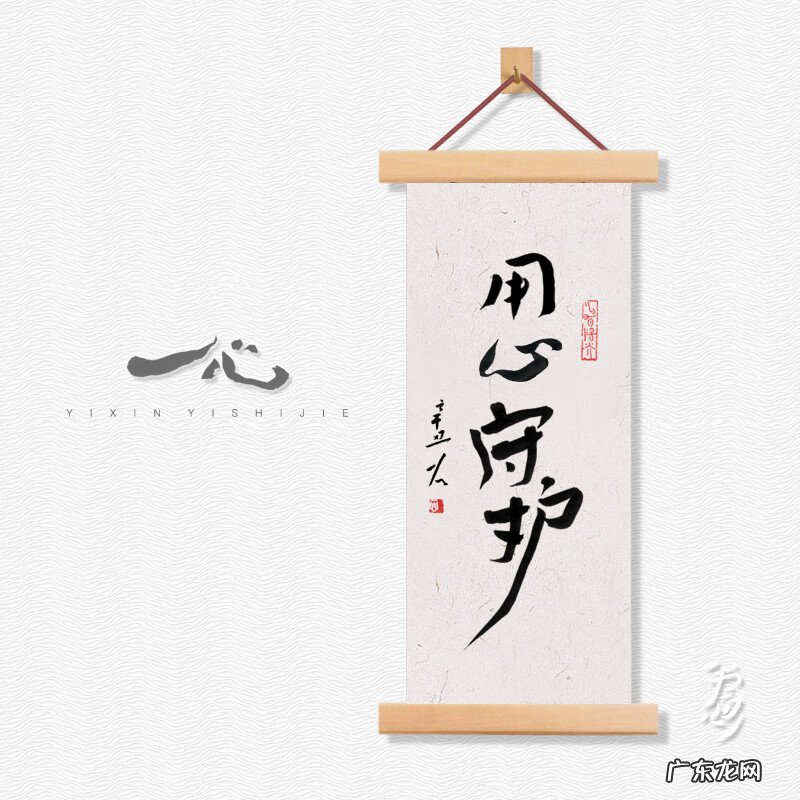 一心
YIXIN YISHIJIE
用心守护
辛丑
广东龙网